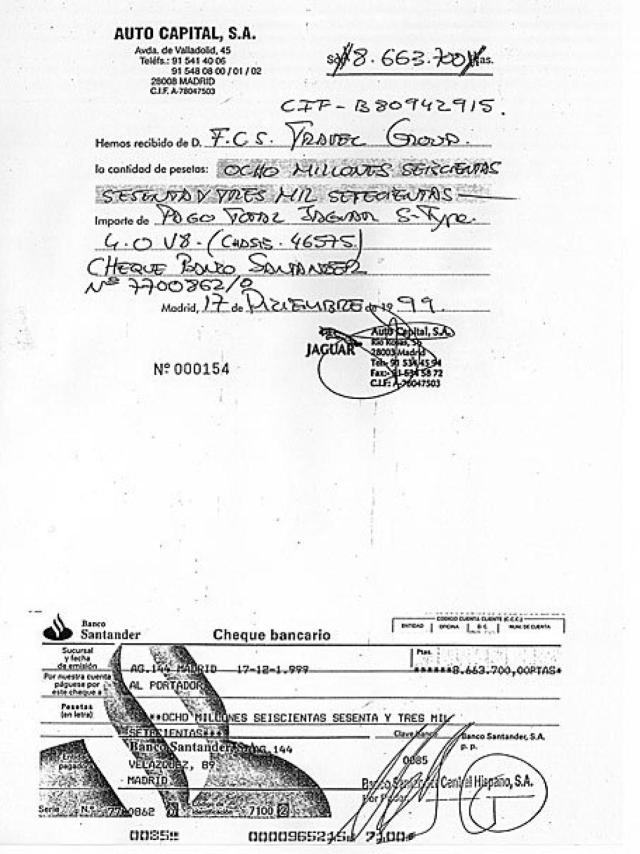 AUTO CAPITAL, S.A.
Avda. de Valladolid, 45
Teléfs.: 91 541 40 06
91 548 08 00 / 01 / 02
28008 MADRID
C.I.F. A-78047503
8.663.700
CIF-B80942915.
Hemos recibido de D. F.C.S. TRAVEL GROUP.
la cantidad de pesetas: OCHO MILLONES SEISCIENTAS
SESENTA Y TRES MIL SETECIENTAS
Importe de PAGO TOTAL JAGUAR S-Type.
4.0 V8-(CHASIS. 46575)
CHEQUE BANCO SANTANDER
Nº 7700862/0
Madrid, 17 de DICIEMBRE de 19 99.
JAGUAR
Auto Capital, S.A.
28003 Madrid
C.I.F: A-78047503
Nº 000154
Banco
Santander
Cheque bancario
CODIGO CUENTA CLIENTE (C.C.C.)
ENTIDAD OFICINA D.C. NUM. DE CUENTA
Sucursal
y fecha
de emisión
AG.144 MADRID 17-12-1.999
Ptas.
******8.663.700,00PTAS*
Por nuestra cuenta
páguese por
este cheque a
AL PORTADOR
Pesetas
(en letra)
**OCHO MILLONES SEISCIENTAS SESENTA Y TRES MIL
SETECIENTAS***
Banco Santander AG.144
Clave banco
Banco Santander, S.A.
p. p.
VELAZQUEZ, 89
0085
MADRID
Central Hispano, S.A.
Serie N.º 7700862 7100
0085 000096521 7100